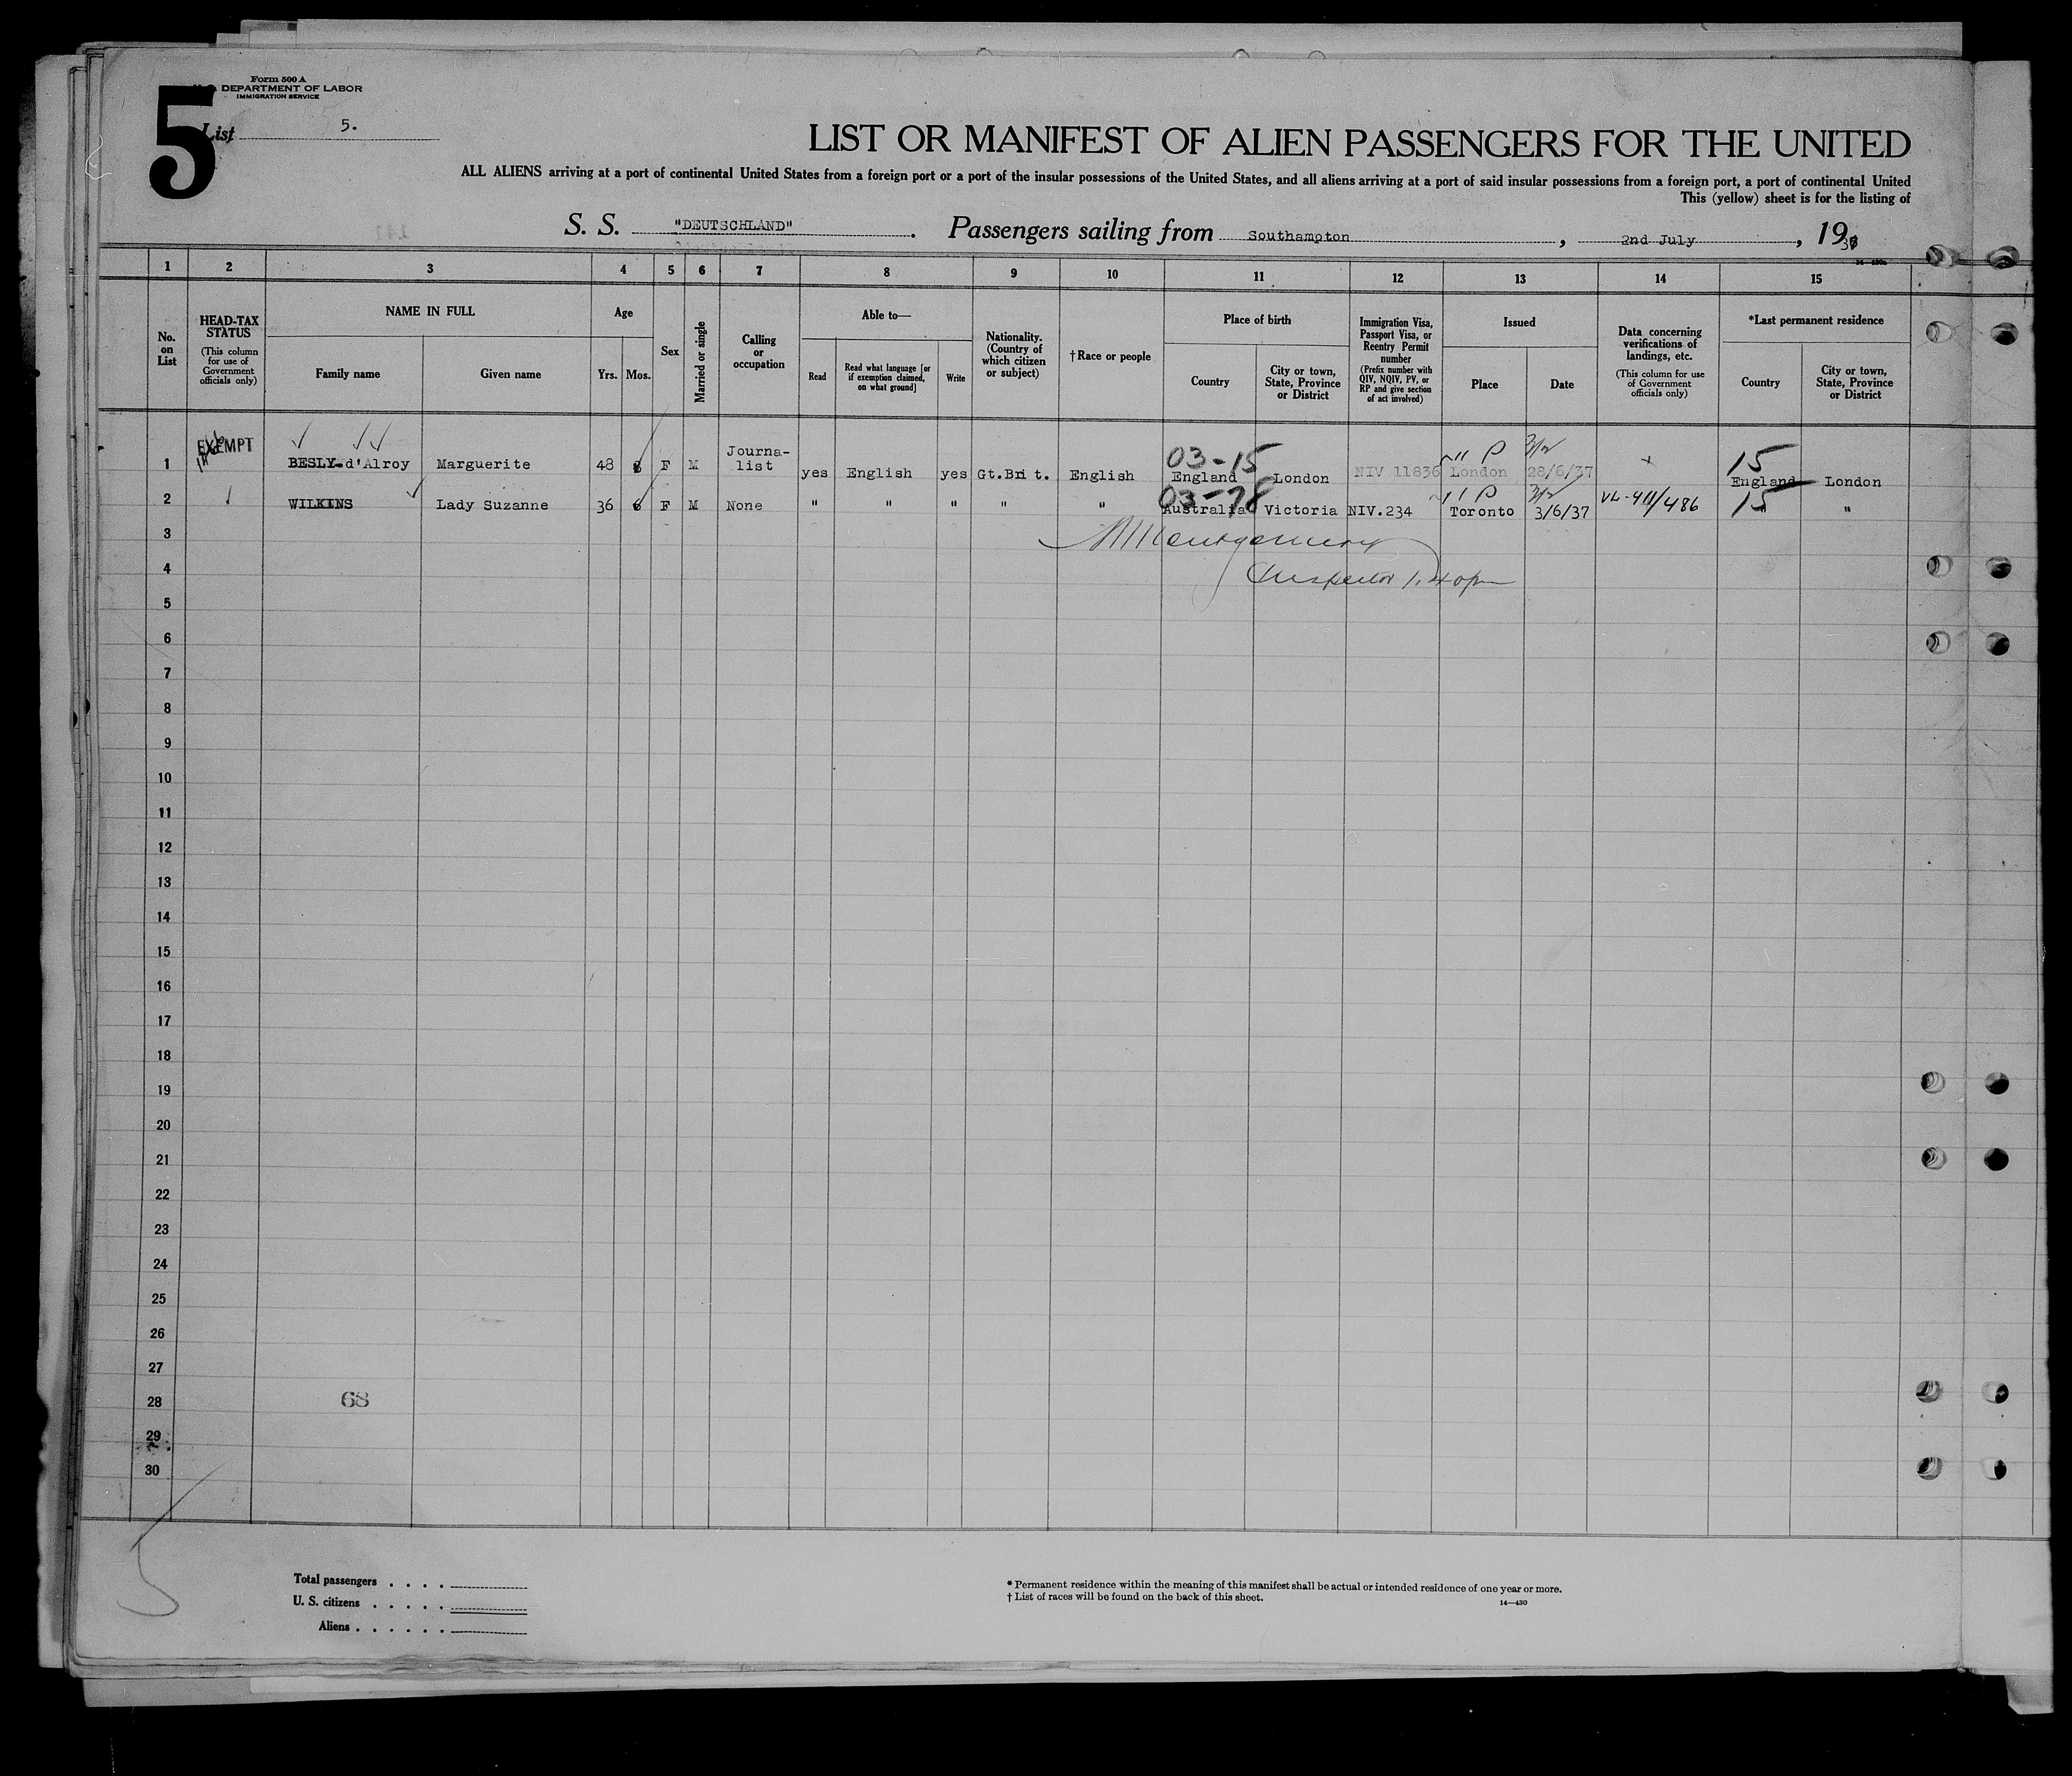 Form 500 A
DEPARTMENT OF LABOR
IMMIGRATION SERVICE
5
List 5.
LIST OR MANIFEST OF ALIEN PASSENGERS FOR THE UNITED
ALL ALIENS arriving at a port of continental United States from a foreign port or a port of the insular possessions of the United States, and all aliens arriving at a port of said insular possessions from a foreign port, a port of continental United
This (yellow) sheet is for the listing of
S. S. "DEUTSCHLAND" . Passengers sailing from Southampton , 2nd July , 1937
1 2 3 4 5 6 7 8 9 10 11 12 13 14 15
No. on List
HEAD-TAX STATUS
(This column for use of Government officials only)
NAME IN FULL
Family name Given name
Age
Yrs. Mos.
Sex
Married or single
Calling or occupation
Able to—
Read
Read what language [or if exemption claimed, on what ground]
Write
Nationality. (Country of which citizen or subject)
†Race or people
Place of birth
Country
City or town, State, Province or District
Immigration Visa, Passport Visa, or Reentry Permit number
(Prefix number with QIV, NQIV, PV, or RP and give section of act involved)
Issued
Place Date
Data concerning verifications of landings, etc.
(This column for use of Government officials only)
*Last permanent residence
Country
City or town, State, Province or District
03-15 15
1 EXEMPT BESLY-d'Alroy Marguerite 48 F M Journa-list yes English yes Gt.Brit. English England London NIV 11836 London 28/6/37 England London
03-78 15
2 WILKINS Lady Suzanne 36 F M None " " " " " Australia Victoria NIV.234 Toronto 3/6/37 "
3 Montgomery
4 Inspector 1.40pm
5
6
7
8
9
10
11
12
13
14
15
16
17
18
19
20
21
22
23
24
25
26
27
28 68
29
30
Total passengers . . . .
U. S. citizens . . . . .
Aliens . . . . . .
* Permanent residence within the meaning of this manifest shall be actual or intended residence of one year or more.
† List of races will be found on the back of this sheet.
14—430